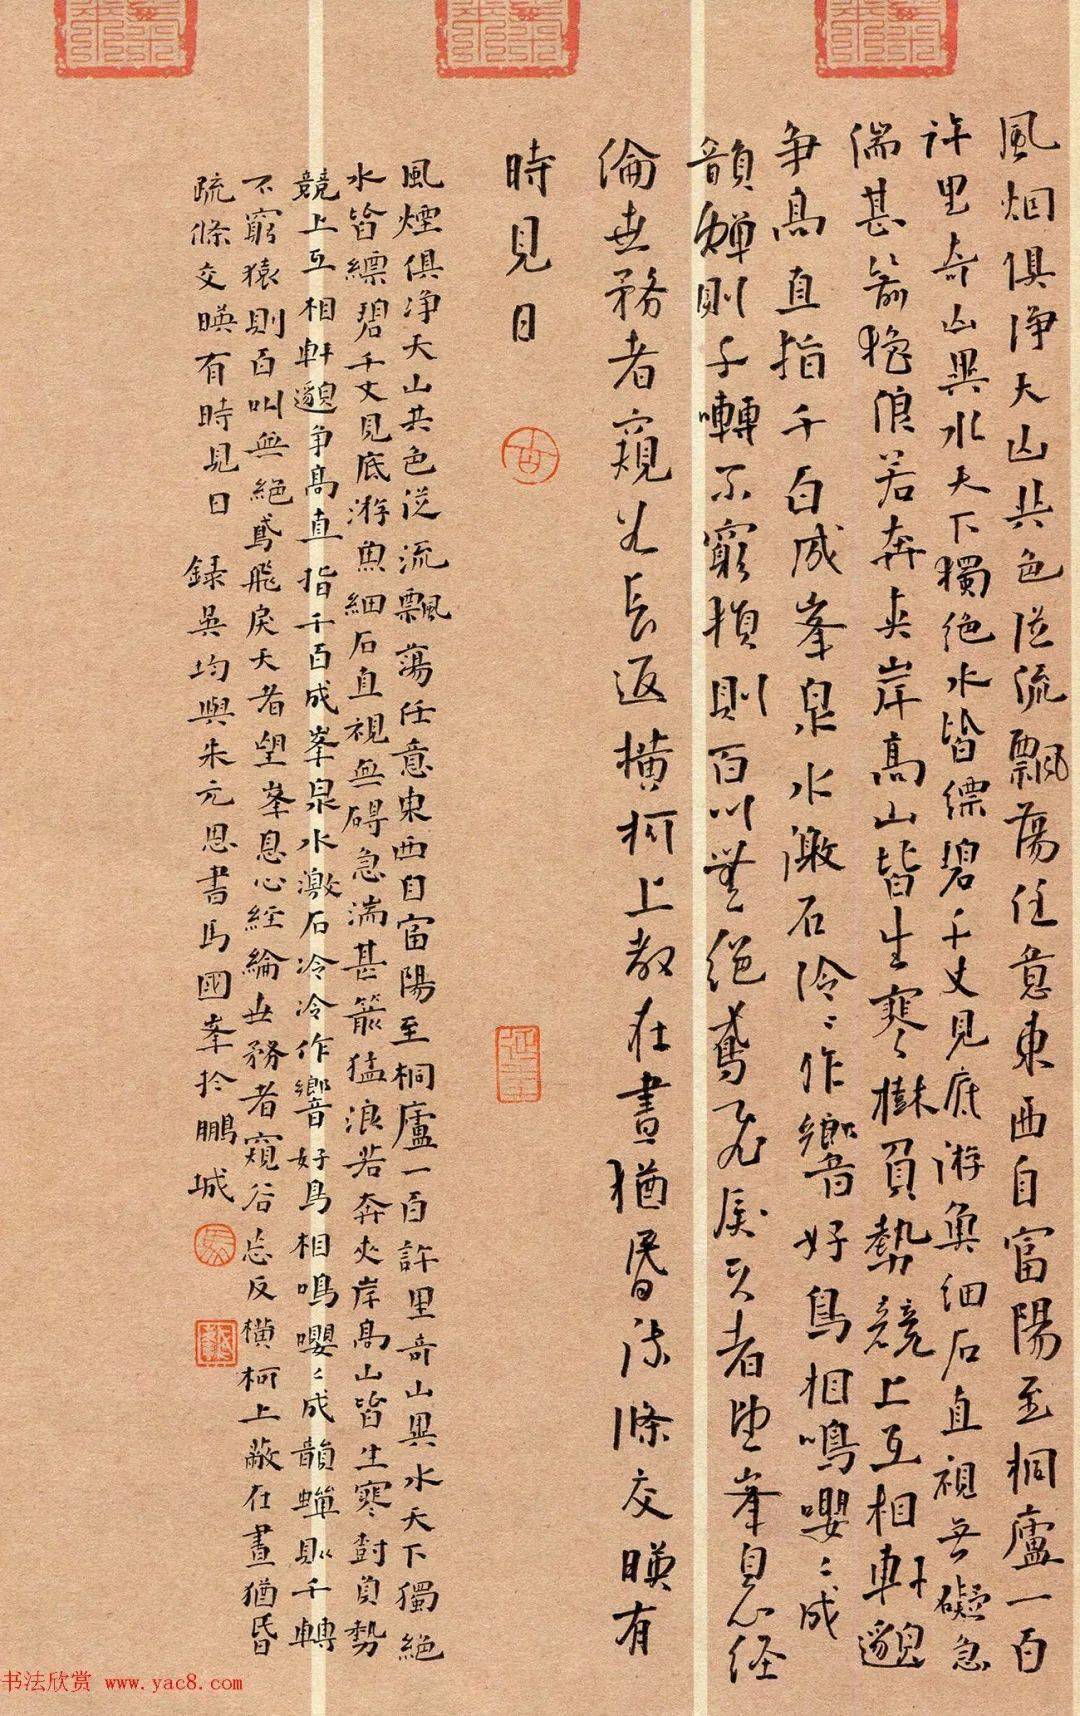 風烟俱淨天山共色從流飄蕩任意東西自富陽至桐廬一百
許里奇山異水天下獨絕水皆縹碧千丈見底游魚細石直視無礙急
湍甚箭猛浪若奔夾岸高山皆生寒樹負勢競上互相軒邈
爭高直指千百成峯泉水激石泠泠作響好鳥相鳴嚶嚶成
韻蟬則千囀不窮猿則百叫無絕鳶飛戾天者望峯息心經
綸世務者窺谷忘返橫柯上蔽在晝猶昏疏條交暎有
時見日
風煙俱淨天山共色從流飄蕩任意東西自富陽至桐廬一百許里奇山異水天下獨絕
水皆縹碧千丈見底游魚細石直視無碍急湍甚箭猛浪若奔夾岸高山皆生寒樹負勢
競上互相軒邈爭高直指千百成峯泉水激石冷冷作響好鳥相鳴嚶嚶成韻蟬則千轉
不窮猿則百叫無絕鳶飛戾天者望峯息心經綸世務者窺谷忘反橫柯上蔽在晝猶昏
疏條交暎有時見日 録吳均與朱元思書馬國峯於鵬城
书法欣赏 www.yac8.com